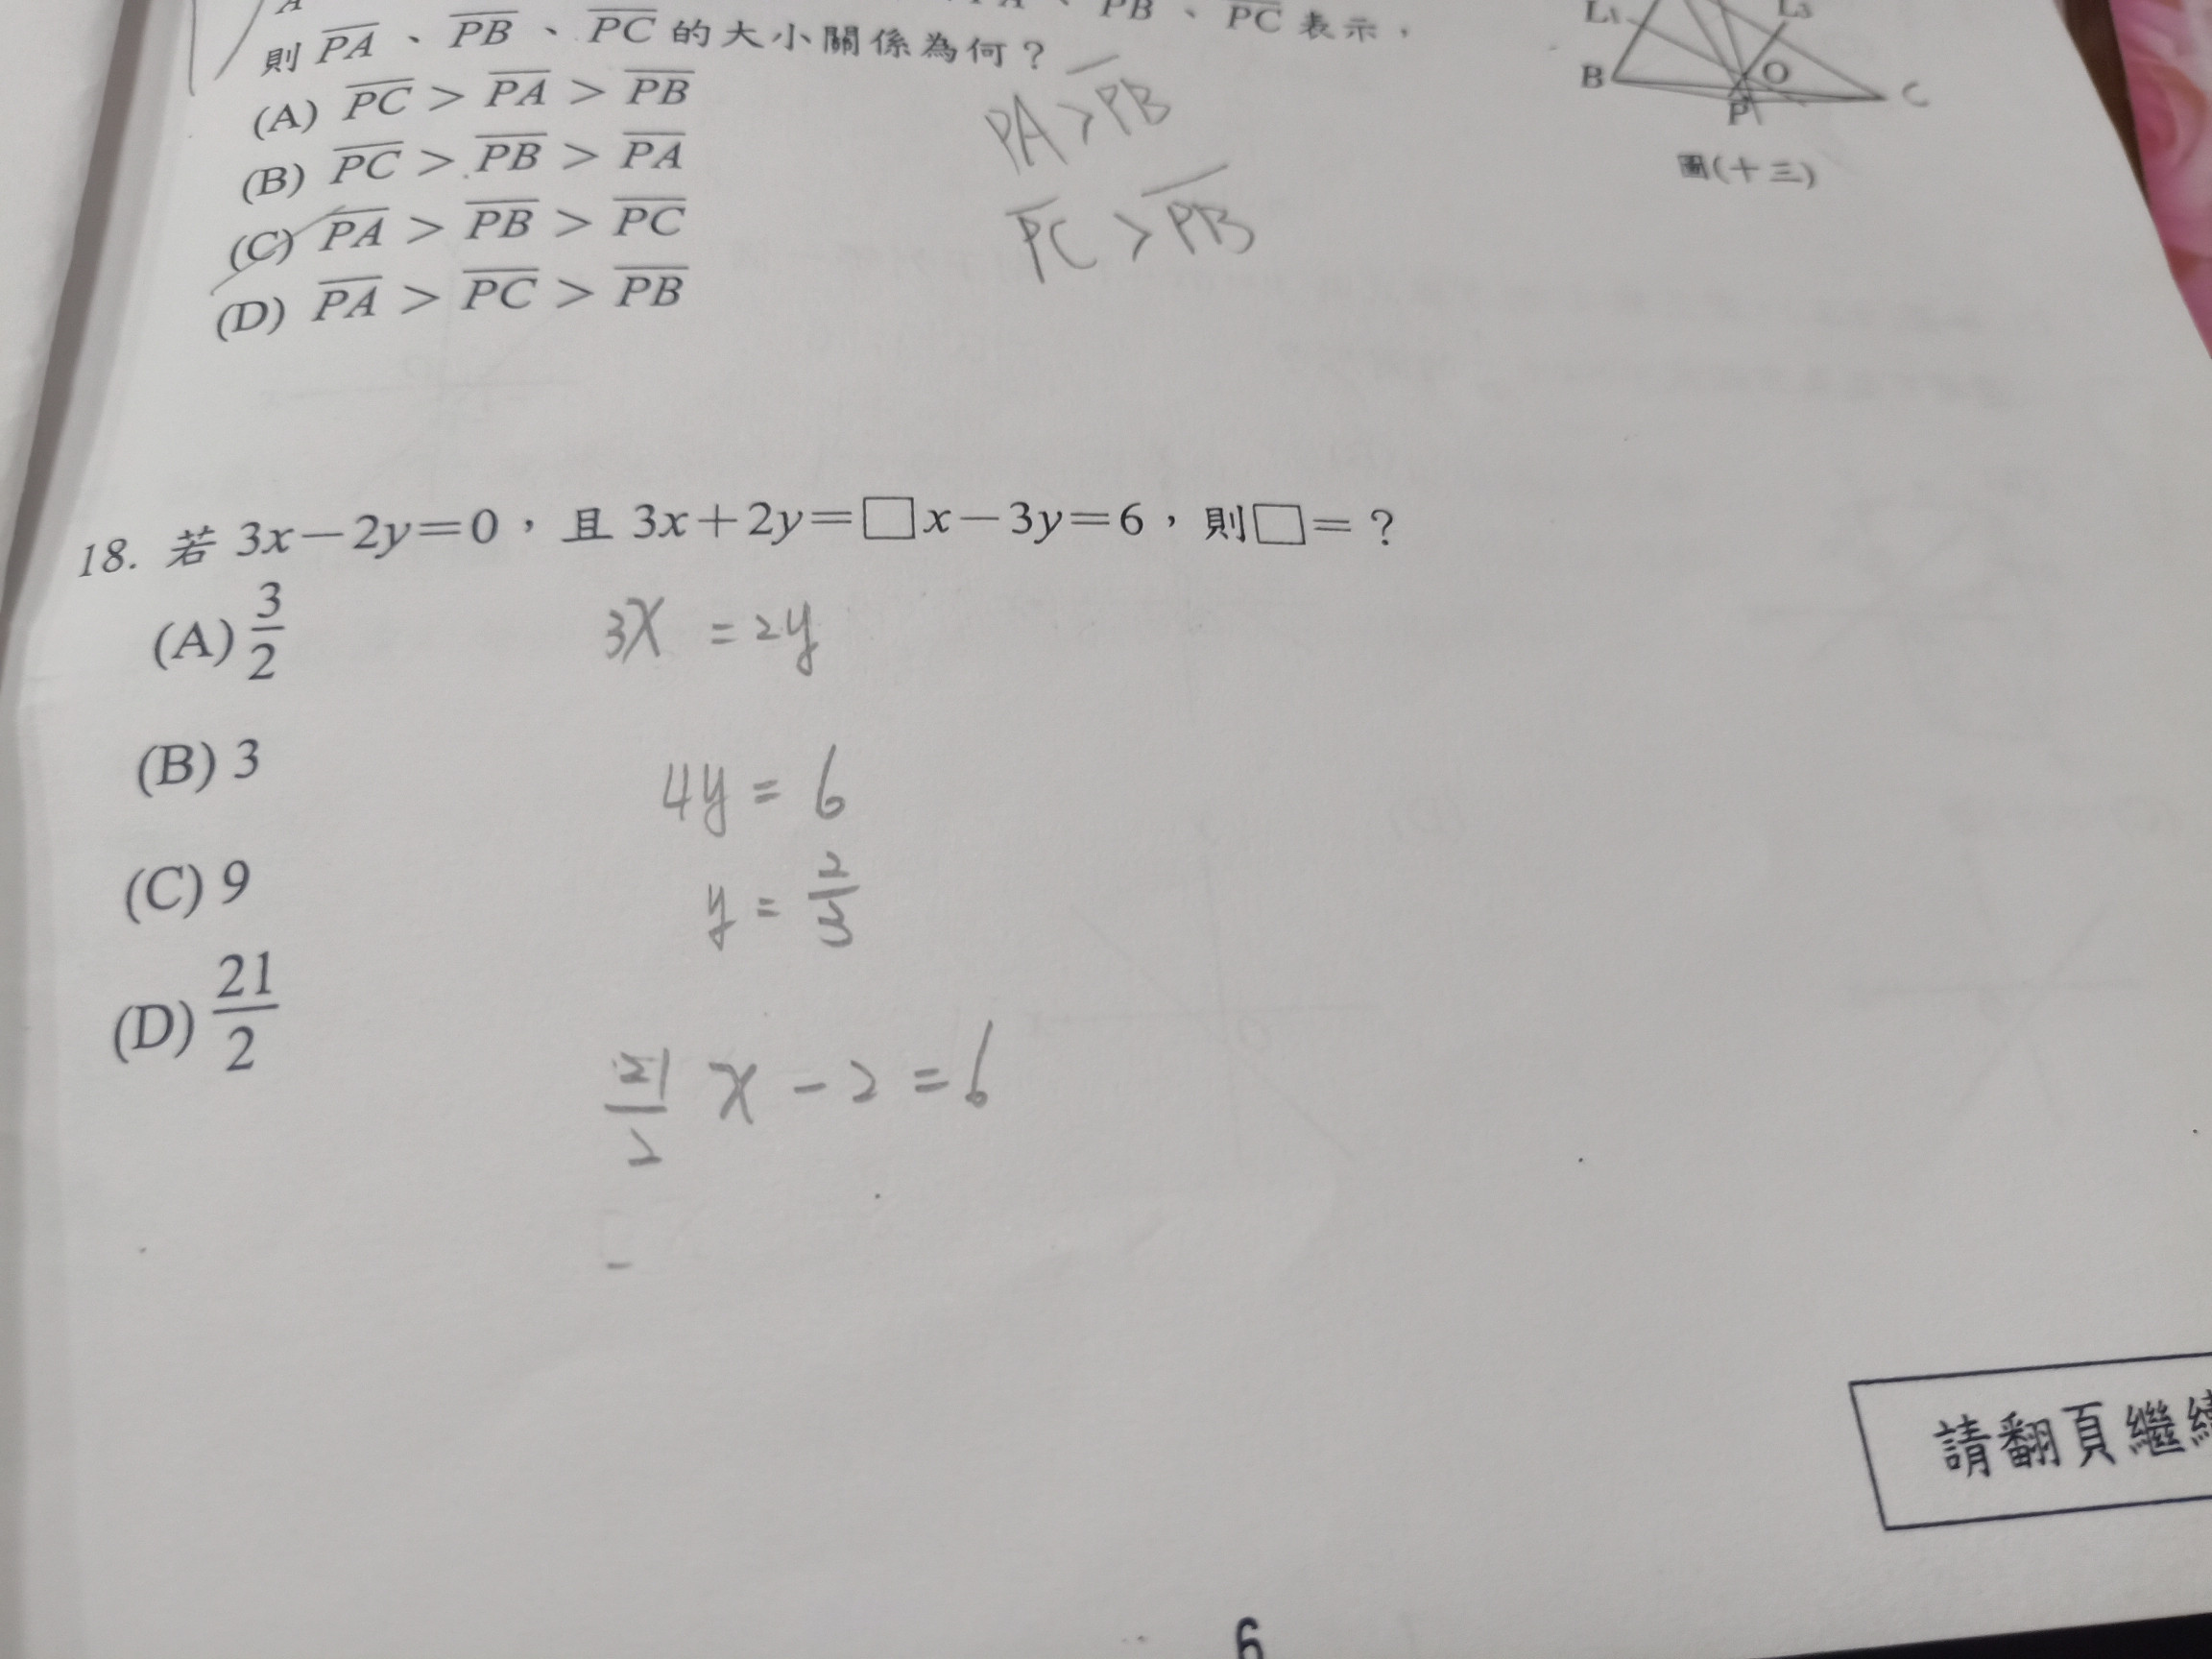 A
PB、PC表示，
則 PA、PB、PC的大小關係為何？
(A) PC > PA > PB
(B) PC > PB > PA
(C) PA > PB > PC
(D) PA > PC > PB
PA > PB
PC > PB
L₁
L₃
B
O
P
C
圖(十三)
18. 若 3x－2y＝0，且 3x＋2y＝□x－3y＝6，則□＝？
(A) 3/2
(B) 3
(C) 9
(D) 21/2
3x = 2y
4y = 6
y = 2/3
21/2 x - 2 = 6
請翻頁繼續
6